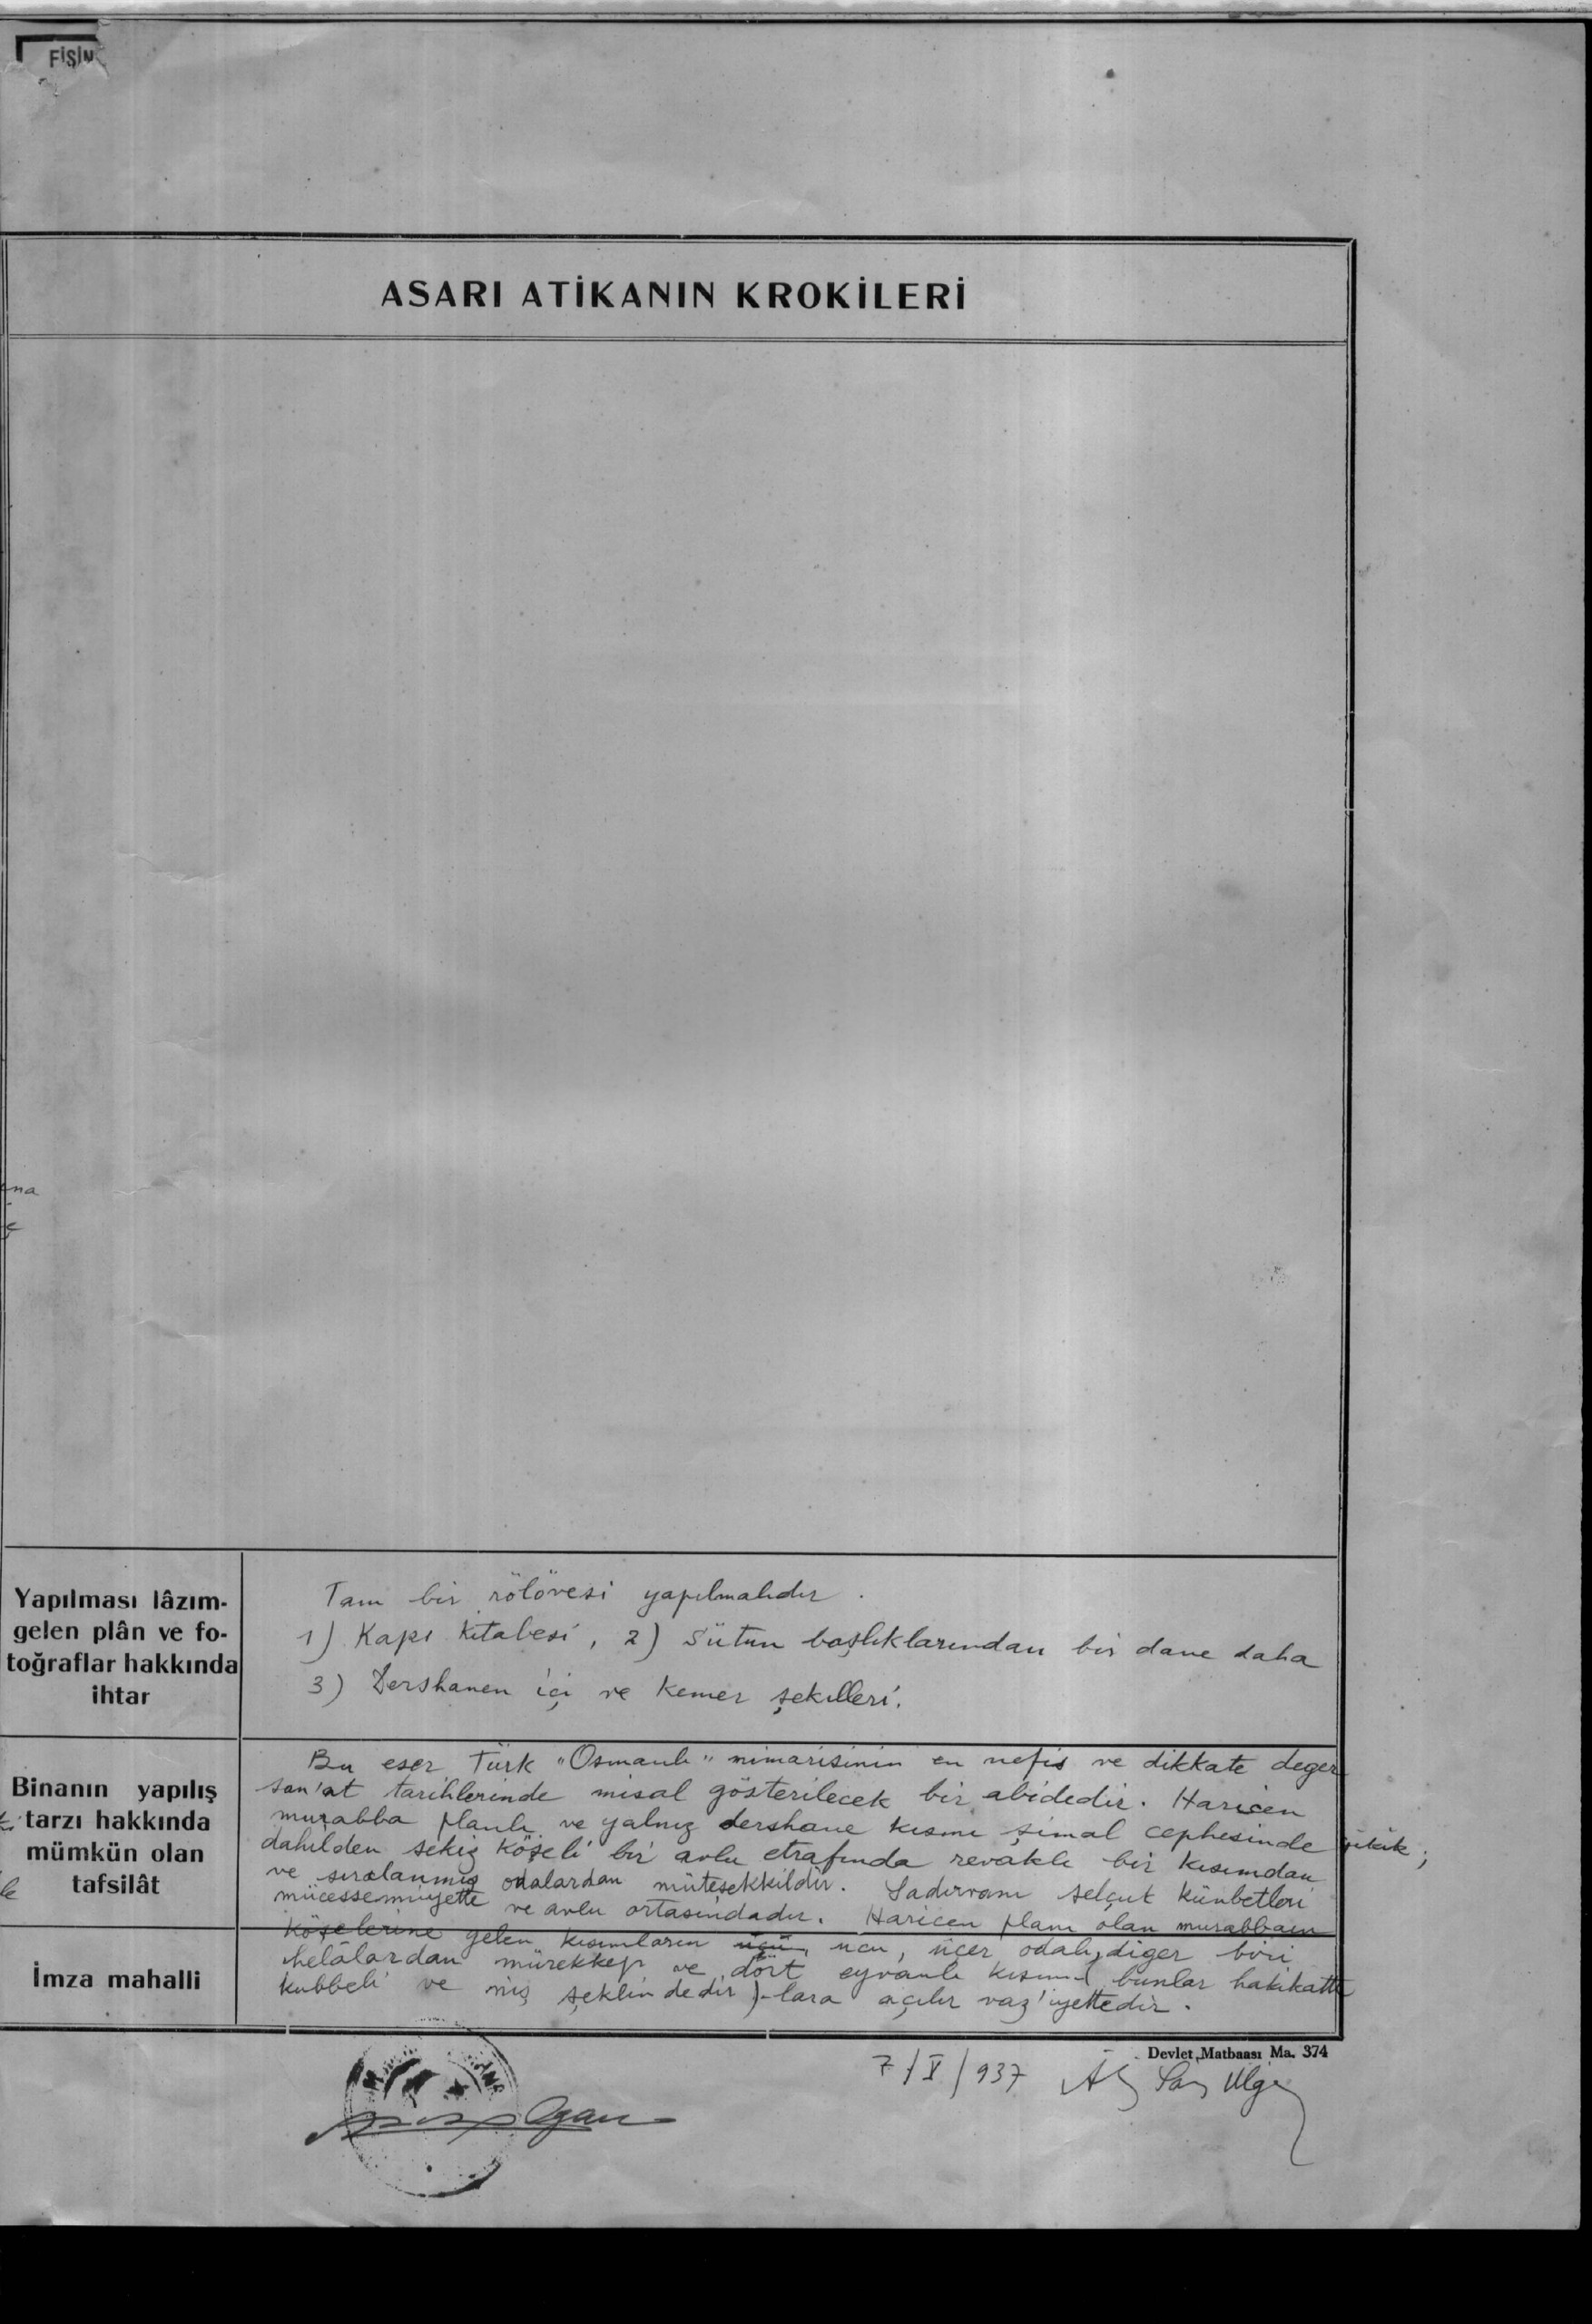 FİŞİN
ASARI ATİKANIN KROKİLERİ
na
ç
Yapılması lâzım-
gelen plân ve fo-
toğraflar hakkında
ihtar
Tam bir rölövesi yapılmalıdır.
1) Kapı kitabesi, 2) Sütun başlıklarından bir dane daha
3) Dershanen içi ve kemer şekilleri.
Binanın yapılış
tarzı hakkında
mümkün olan
tafsilât
Bu eser Türk "Osmanlı" mimarisinin en nefis ve dikkate deger
san'at tarihlerinde misal gösterilecek bir abidedir. Haricen
murabba planlı ve yalnız dershane kısmı şimal cephesinde çıkık;
dahilden sekiz köşeli bir avlu etrafında revaklı bir kısımdan
ve sıralanmış odalardan müteşekkildir. Şadırvanı selçuk künbetleri
mücessemiyette ve avlu ortasındadır. Haricen planı olan murabbaın
köşelerine gelen kısımların üçü, üçer odalı, diger biri
helâlardan mürekkep ve dört eyvanlı kısım (bunlar hakikatte
kubbeli ve niş şeklindedir)-lara açılır vaz'iyettedir.
İmza mahalli
Devlet Matbaası Ma. 374
7/V/937
Ogan
Ülgen